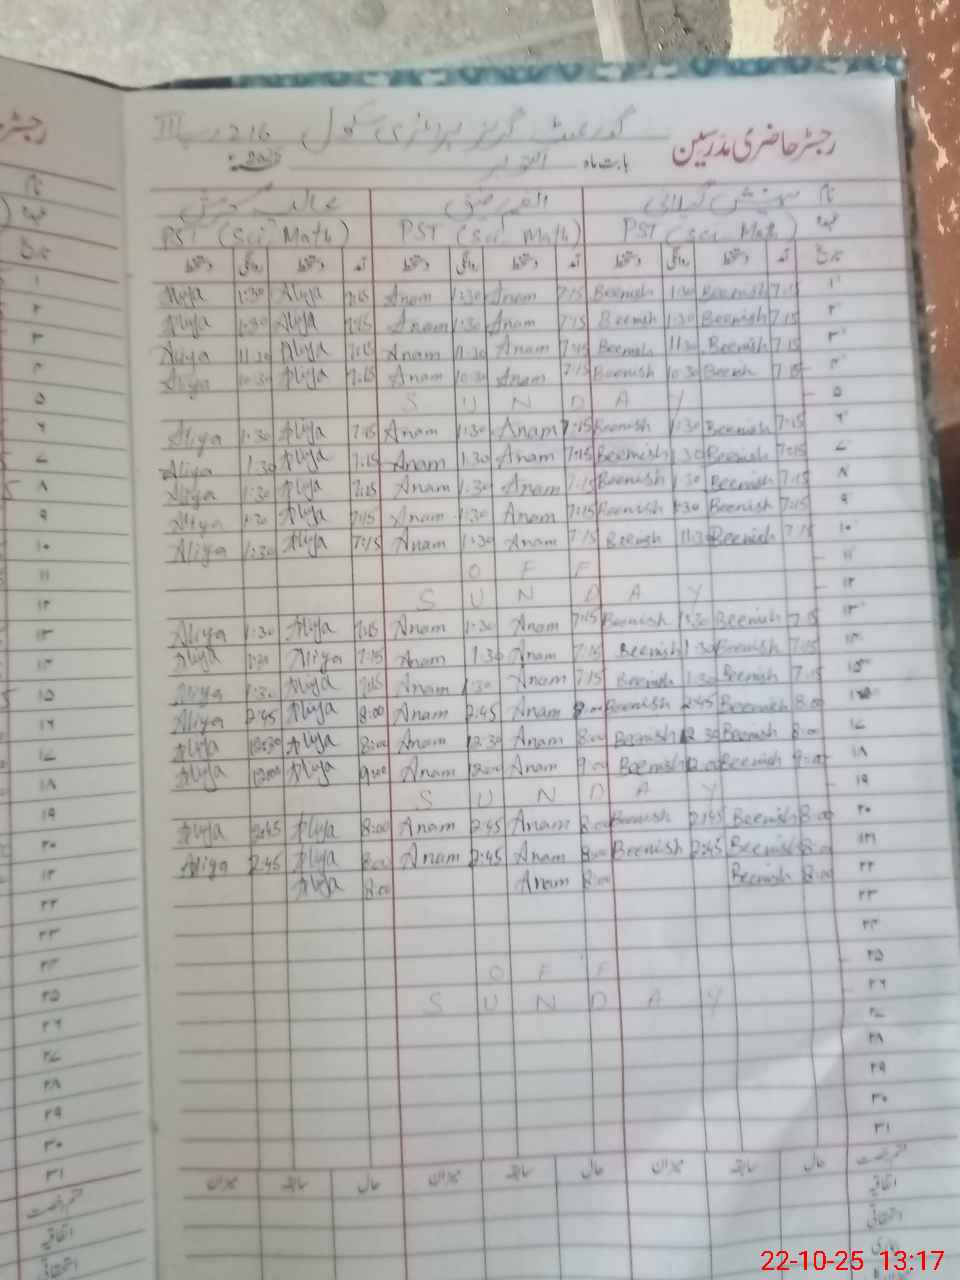 رجسٹر حاضری مدرسین
گورنمنٹ گرلز پرائمری سکول 216 ر ب III
بابت ماہ اکتوبر
نام
PST (Sci Math) PST (Sci Math) PST (Sci Math)
تاریخ آمد دستخط روانگی دستخط آمد دستخط روانگی دستخط آمد دستخط روانگی دستخط
Aliya 1:30 Aliya 7:15 Anam 1:30 Anam 7:15 Beenish 1:30 Beenish 7:15 ۱
Aliya 1:30 Aliya 7:15 Anam 1:30 Anam 7:15 Beenish 1:30 Beenish 7:15 ۲
Aliya 11:30 Aliya 7:15 Anam 11:30 Anam 7:15 Beenish 11:30 Beenish 7:15 ۳
Aliya 10:30 Aliya 7:15 Anam 10:30 Anam 7:15 Beenish 10:30 Beenish 7:15 ۴
S U N D A Y ۵
Aliya 1:30 Aliya 7:15 Anam 1:30 Anam 7:15 Beenish 1:30 Beenish 7:15 ۶
Aliya 1:30 Aliya 7:15 Anam 1:30 Anam 7:15 Beenish 1:30 Beenish 7:15 ۷
Aliya 1:30 Aliya 7:15 Anam 1:30 Anam 7:15 Beenish 1:30 Beenish 7:15 ۸
Aliya 1:30 Aliya 7:15 Anam 1:30 Anam 7:15 Beenish 1:30 Beenish 7:15 ۹
Aliya 1:30 Aliya 7:15 Anam 1:30 Anam 7:15 Beenish 11:30 Beenish 7:15 ۱۰
O F F ۱۱
S U N D A Y ۱۲
Aliya 1:30 Aliya 7:15 Anam 1:30 Anam 7:15 Beenish 1:30 Beenish 7:15 ۱۳
Aliya 1:30 Aliya 7:15 Anam 1:30 Anam 7:15 Beenish 1:30 Beenish 7:15 ۱۴
Aliya 1:30 Aliya 7:15 Anam 1:30 Anam 7:15 Beenish 1:30 Beenish 7:15 ۱۵
Aliya 2:45 Aliya 8:00 Anam 2:45 Anam 8:00 Beenish 2:45 Beenish 8:00
Aliya 12:30 Aliya 8:00 Anam 12:30 Anam 8:00 Beenish 12:30 Beenish 8:00 ۱۷
Aliya 12:00 Aliya 9:00 Anam 12:00 Anam 9:00 Beenish 12:00 Beenish 9:00 ۱۸
S U N D A Y ۱۹
Aliya 2:45 Aliya 8:00 Anam 2:45 Anam 8:00 Beenish 2:45 Beenish 8:00 ۲۰
Aliya 2:45 Aliya 8:00 Anam 2:45 Anam 8:00 Beenish 2:45 Beenish 8:00 ۲۱
Aliya 8:00 Anam 8:00 Beenish 8:00 ۲۲
۲۳
۲۴
O F F ۲۵
S U N D A Y ۲۶
۲۷
۲۸
۲۹
۳۰
۳۱
میزان سابقہ حال میزان سابقہ حال میزان سابقہ حال
اتفاقی
استحقاقی
بیماری
22-10-25 13:17